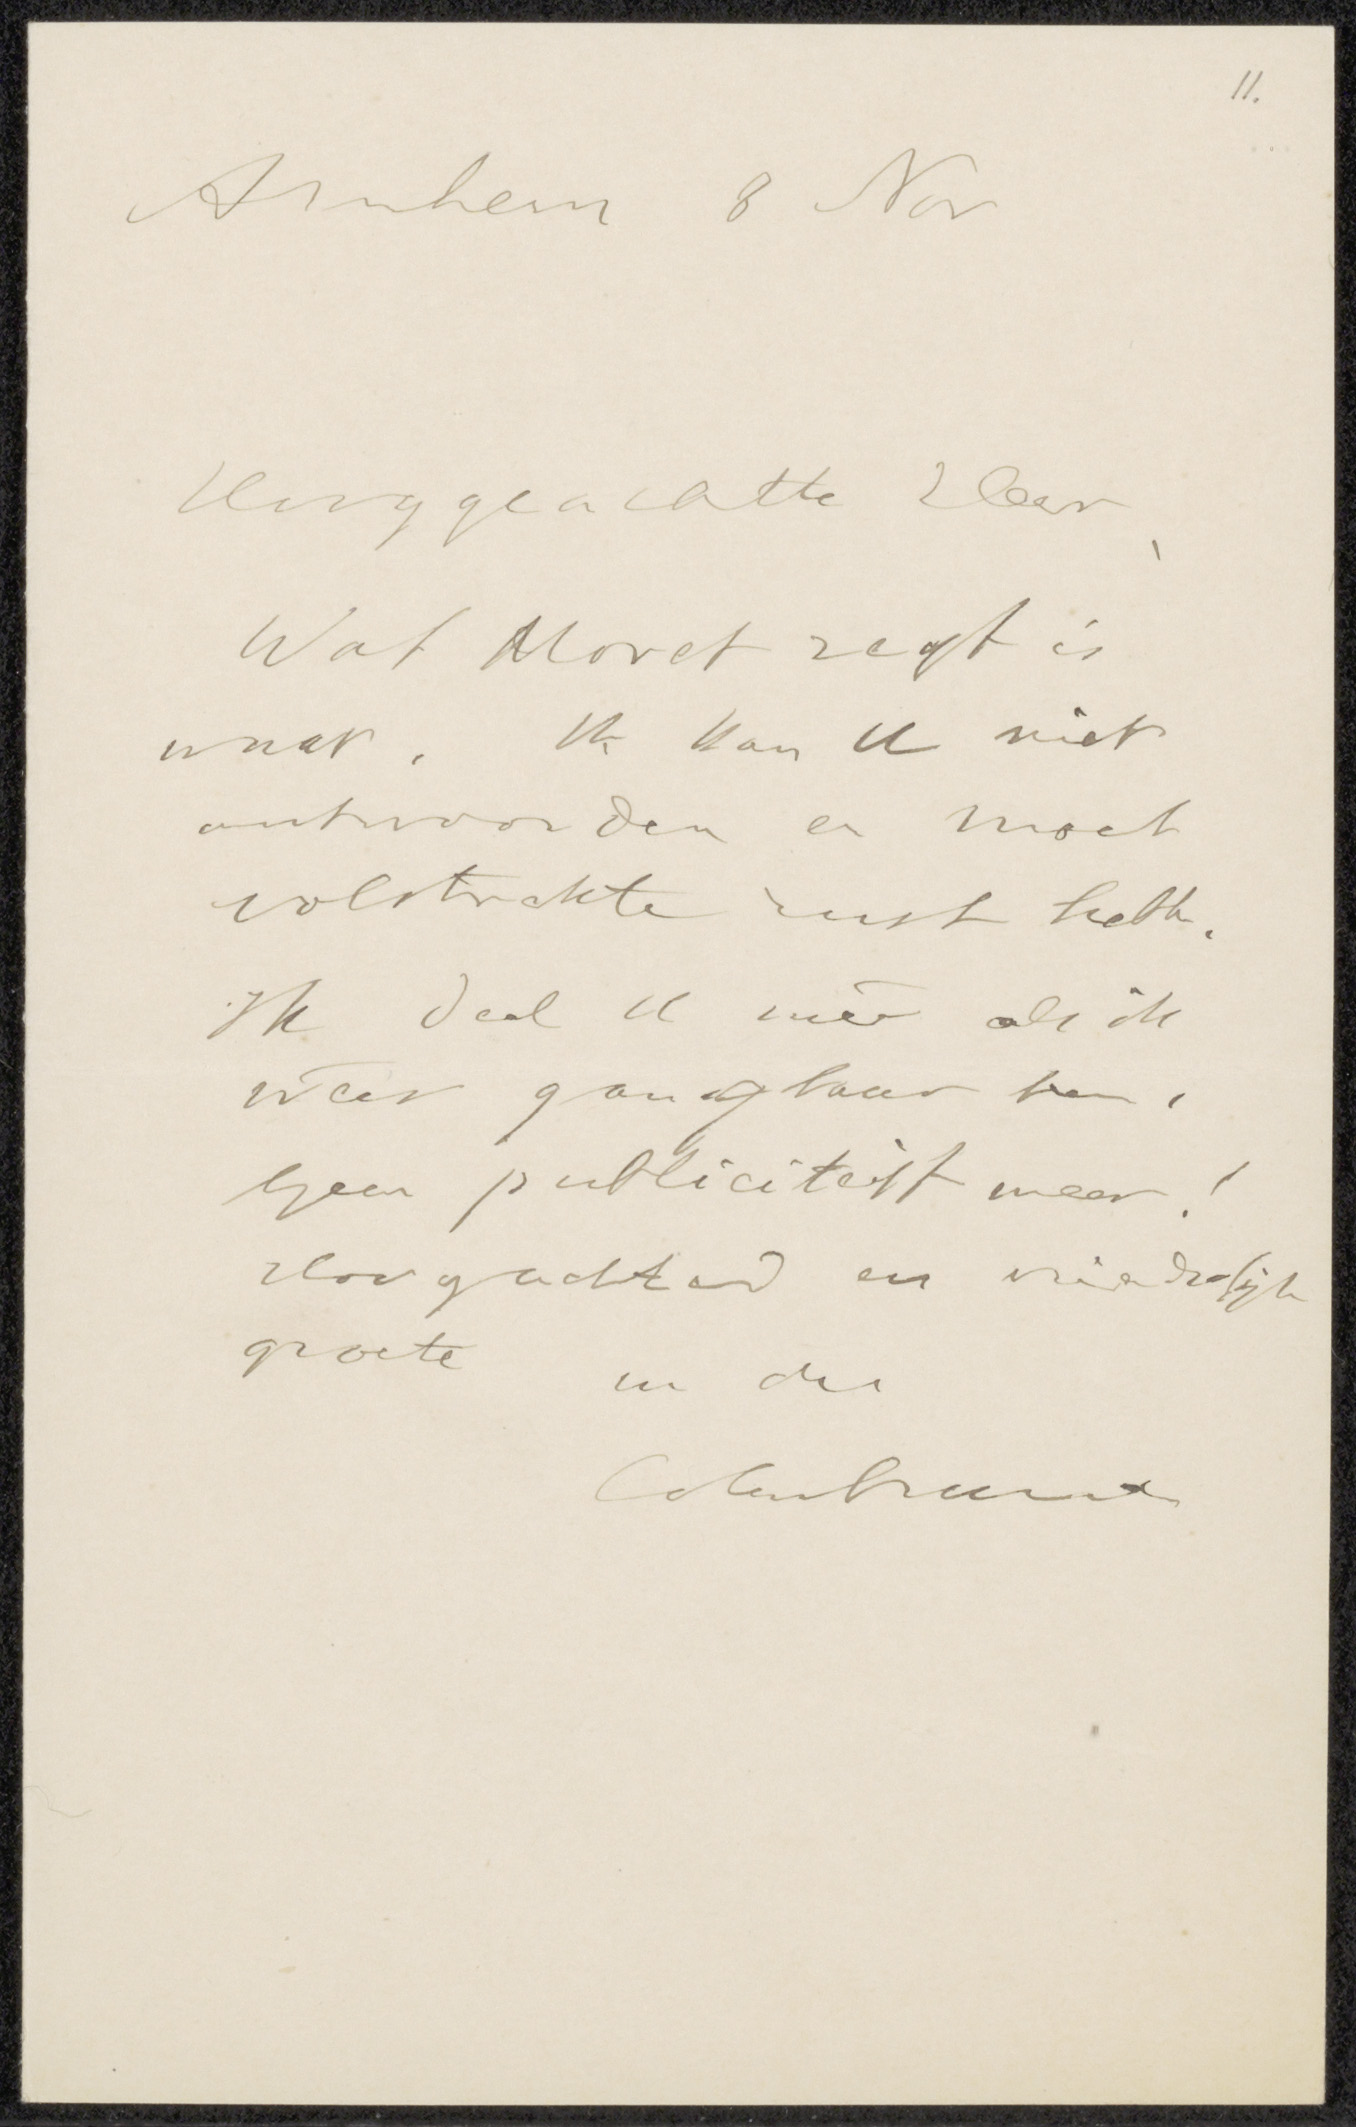 11.
Arnhem 8 Nov
Hooggeachte Heer,
Wat Moret zegt is
waar. Ik kan U niet
antwoorden en moet
volstrekte rust hebb.
Ik deel U mêe als ik
wêer gangbaar ben.
Geen publiciteit meer!
Hoogachtend en vriendelijk
groete
Colenbrander